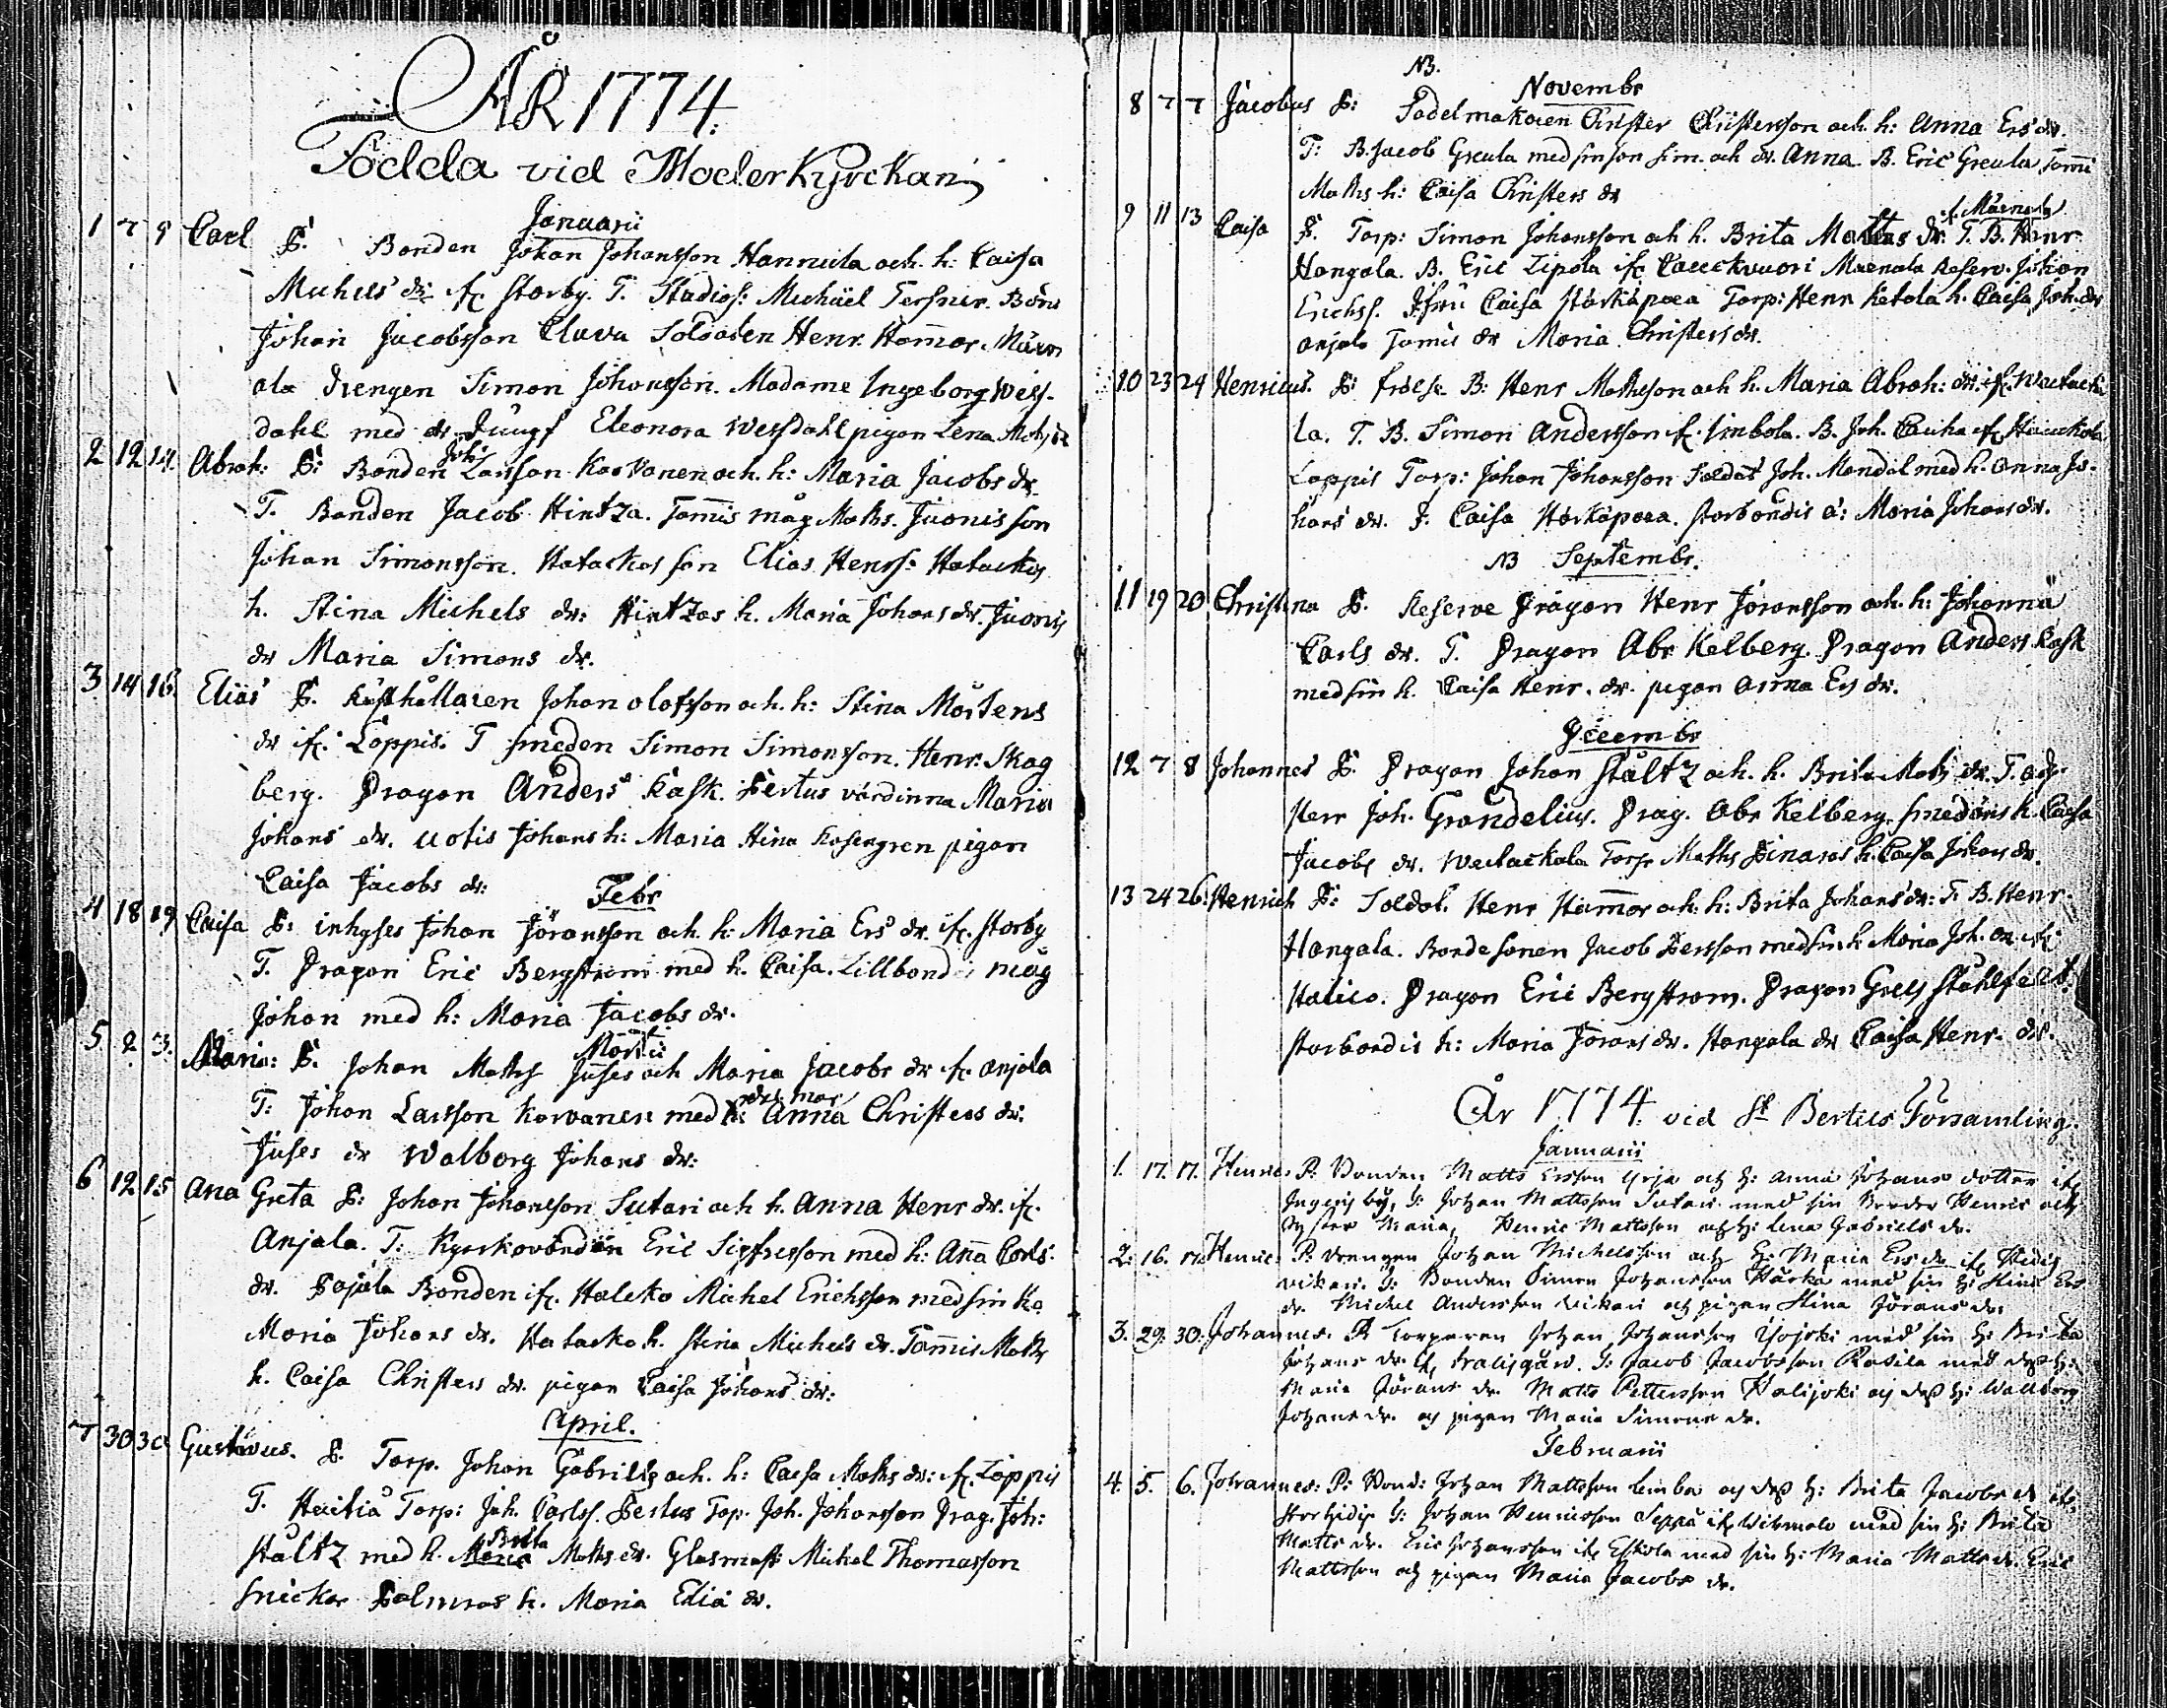 ÅR 1774.
Födda vid Moderkyrckan
Januarii
1 7 9 Carl P. Bonden Johan Johansson Hannula och h: Caisa
Michels dr. if. Storby. T. Studios: Michäel Bön
Johan Jacobsson Clava Soldaten Henr. Ham̄ar. Mäen
ala Drengen Simon Johansson. Madame Ingeborg Wess-
dahl med dr. Jungf Eleonora Wessdahl pigan Lena
2 12 14. Abrah: P: Bonden Joh: Larsson Korvanen och. h: Maria Jacobs dr.
T. Bonden Jacob Hintza. Tom̄is måg Maths. Juonis son
Johan Simonsson. Hatackas son Elias Henrs: Hatackas
h. Stina Michels dr: Hintzas h. Maria Johans dr. Juonis
dr Maria Simons dr.
3 14 16. Elias P. Rusthållaren Johan olofsson och. h: Stina Mårtens
dr if. Loppis. T Smeden Simon Simonsson. Henr. Skog
berg. Dragon Anders Kask. Pertus värdinna Maria
Johans dr. Uotis Johans h: Maria Stina Rosengren pigan
Caisa Jacobs dr:
Febr
4 18 19 Caisa P: inhyses Johan Jöransson och h: Maria Ers dr. if. Storby
T. Dragon Eric Bergström med h. Caisa. Lillbond måg
Johan med h: Maria Jacobs dr.
Martii
5. 2 3. Maria: P. Johan Maths Juses och Maria Jacobs dr if. anjala
T: Johan Larsson Korvanen med h: Anna Christers dr:
Juses dr Walborg Johans dr:
6 12 15 Ana Greta P: Johan Johansson Sutari och h. Anna Henr dr. if.
Anjala. T: Eric Sigfresson med h: An̄a Carls
dr. Pajala Bonden if. Haleko Michel Erichsson med sin h.
Maria Johans dr. Hatacka h. Stina Michels dr. Tom̄is Maths
h. Caisa Christers dr. pigan Caisa Johans dr:
April.
7 30 30 Gustavus. P. Torp. Johan Gabriels och. h: Caesa Maths dr: if. Loppis
T. Torp: Joh. Carlss. Pertus Torp. Joh. Johansson Drag. Joh:
Stältz med h. Maria Britta Maths dr. Glasmäst: Michel Thomasson
Snickar h. Maria Eliä dr.
NB.
Novembr
8 7 7 Jacobus P: Sadelmakaren Christer Christersson och h: Anna Ers dr.
T: B. Jacob Greula med sin son Sim. och dr. Anna. B. Eric Greula Tom̄i
Maths h: Caisa Christers dr
9 11 13 Caisa P. Torp: Simon Johansson och h. Brita Matts dr. if. Mäenala T. B. Henr
Hangala. B. Eric Zipola if. Mäenala Reserv. Johan
Erichss. Caisa Torp: Henr Ketola h. Caisa Joh. dr
anjala Tomis dr Maria Christers dr.
10 23 24 Henricus. P: B: Henr Mathsson och h. Maria Abrah: dr. if. Warlacki
la. T. B. Simon Andersson if. B. Joh. if.
Loppis Torp: Johan Johansson Soldat Joh. Mandal med h. Anna Jo-
hans dr. J. Caisa Storbondis d: Maria Johans dr.
NB Septembr.
11 19 20 Christina P. Reserve Dragon Henr Jöransson och. h: Johanna
Carls dr. T. Dragon Abr Kelberg. Dragon Anders Kask
med sin h. Caisa Henr. dr. pigan Anna Ers dr.
Decembr
12 7 8 Johannes P. Dragon Johan Stältz och. h. Brita Maths dr. T.
Herr Joh. Grandelius. Drag. Abr Kelberg. Smedens h. Caisa
Jacobs dr. Warlackala Torp. Maths h. Caisa Johans dr.
13 24 26. Henrich P: Soldat. Henr Ham̄ar och. h: Brita Johans dr: T. B. Henr.
Hangala. Bondesonen Jacob Persson med sin h. Maria Joh. dr. if.
Haleco. Dragon Eric Bergström. Dragon Grels Stählfelt.
Storbondis h: Maria Jörans dr. Hangala dr Caisa Henr. dr.
År 1774. vid St Bertils Församling.
Januarii
1. 17. 17. Henric P: Bonden Matts Ersson Yrjä och h: Anna Johans dotter if.
Ingeris by, T: Johan Mattsson Sutari med sin Broder Henric och
syster Maria, Henric Mattsson och h: Lena Gabriels dr.
2. 16. 17. Henric. P: Drengen Johan Michelsson och h: Maria Ers dr if.
T: Bonden Simon Johansson Härkä med sin h: Stina Ers
dr. Michel Andersson Wikari och pigan Stina Jörans dr.
3. 29. 30. Johannes. P. Torparen Johan Johansson med sin h: Brita
Johans dr. if. T: Jacob Jacobsson Rasila med dess h:
Maria Jörans dr. Matts Pettersson Halijoki och dess h: Wallborg
Johans dr. och pigan Maria Simons dr.
Februarii
4. 5. 6. Johannes: P: Bond: Johan Mattsson och dess h: Brita Jacobs dr if.
T: Johan Henricsson Seppä if. med sin h: Brita
Matts dr. Eric Johansson if. Eskola med sin h: Maria Matts dr. Eric
Mattsson och pigan Maria Jacobs dr.